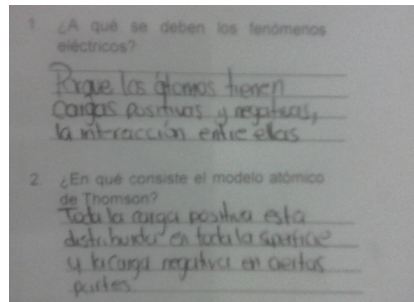 1. ¿A qué se deben los fenómenos
eléctricos?
Porque los átomos tienen
cargas positivas y negativas,
la interacción entre ellas
2. ¿En qué consiste el modelo atómico
de Thomson?
Toda la carga positiva esta
distribuida en toda la superficie
y la carga negativa en ciertas
partes